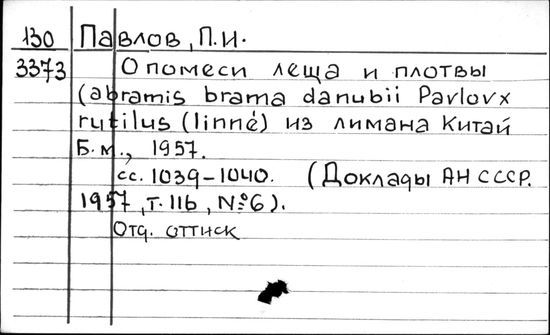 130 Павлов, П.И.
3373 О помеси леща и плотвы
(abramis brama danubii Pavlov x
rutilus (linné) из лимана Китай
Б.м., 1957.
сс. 1039-1040. (Доклады АН СССР.
1957, т. 116, №6).
Отд. оттиск